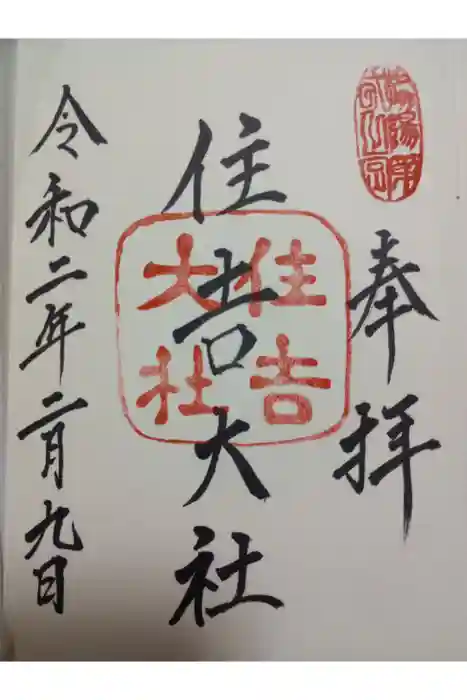 奉拝
住吉大社
住吉
大社
令和二年二月九日